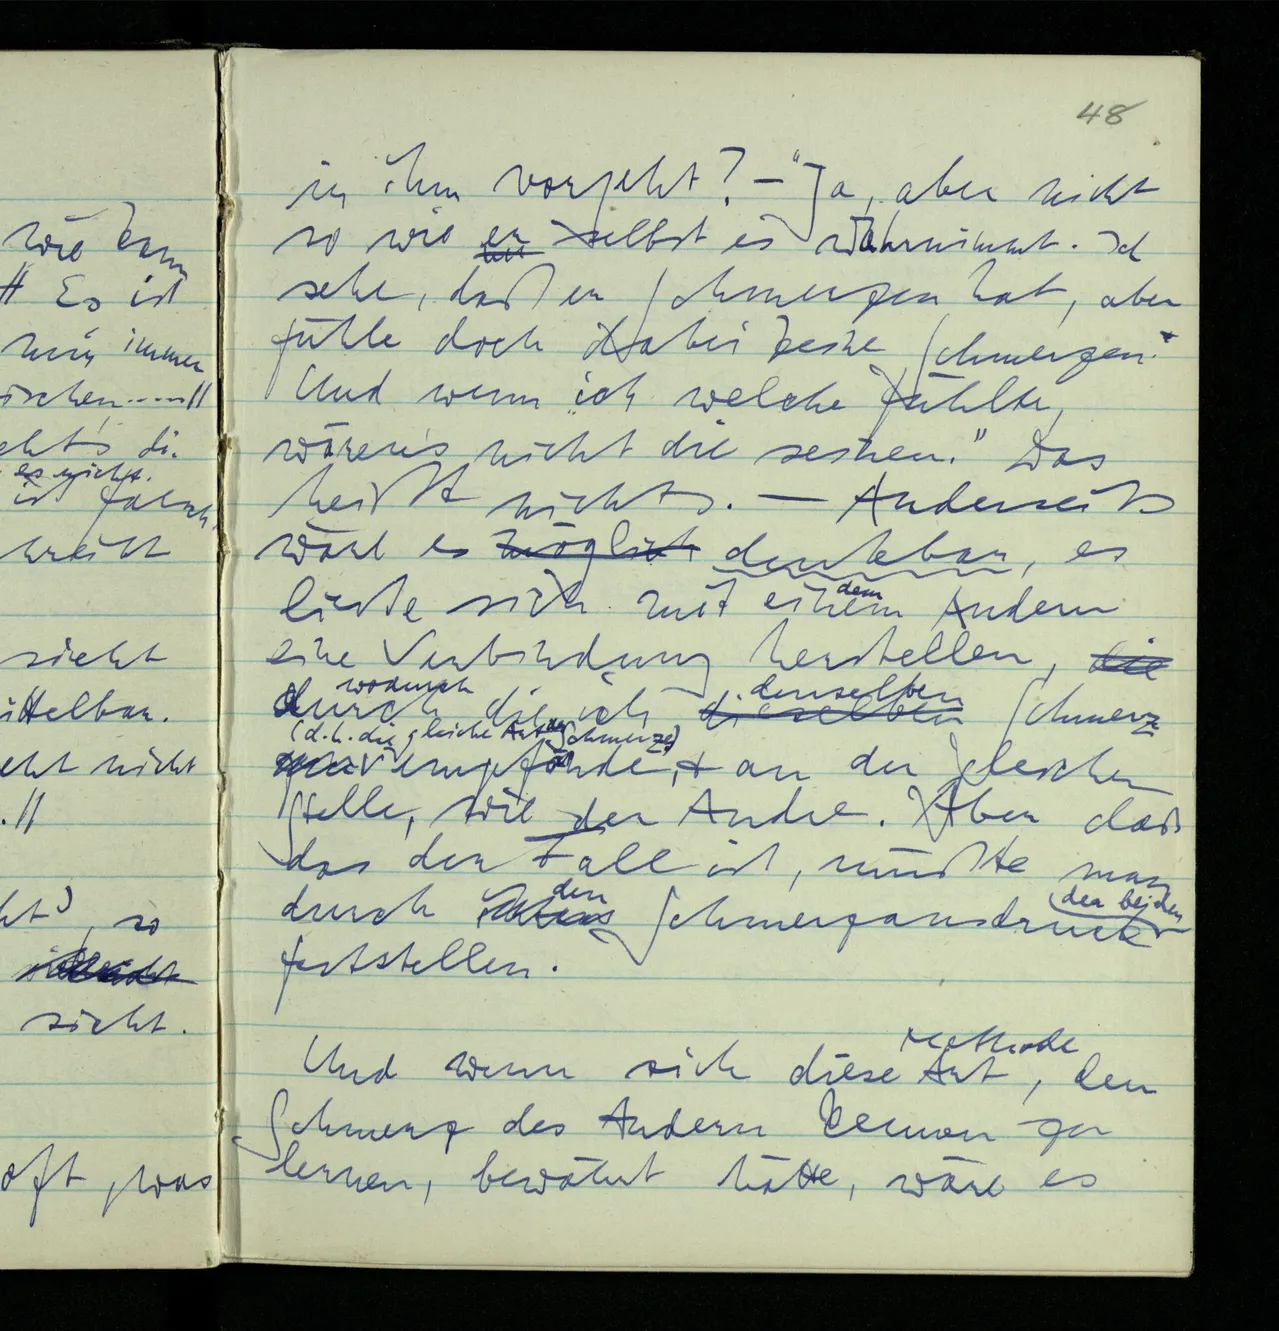 48
wie kann
// Es ist
immer
ischen----//
eht's di.
es nicht.
ist falsch,
sieht
ittelbar.
eht nicht
.//
ht', so
sieht.
oft, was
in ihm vorgeht? – "Ja, aber nicht
so wie er selbst es wahrnimmt. Ich
sehe, daß er Schmerzen hat, aber
fühle doch dabei keine Schmerzen."
Und wenn ich welche fühlte,
wären's nicht die seinen." Das
heißt nichts. — Anderseits
wäre es möglich denkbar, es
dem
ließe sich mit einem Andern
eine Verbindung herstellen, die
wodurch denselben
durch die ich dieselben Schmerz
(d.h. die gleiche Art Schmerz)
empfände, & an der gleichen
Stelle, wie der Andre. Aber daß
das der Fall ist, müßte man
den der beiden
durch Schmerzausdruck
feststellen.
Methode
Und wenn sich diese Art, den
Schmerz des Andern kennen zu
lernen, bewährt hätte, wäre es